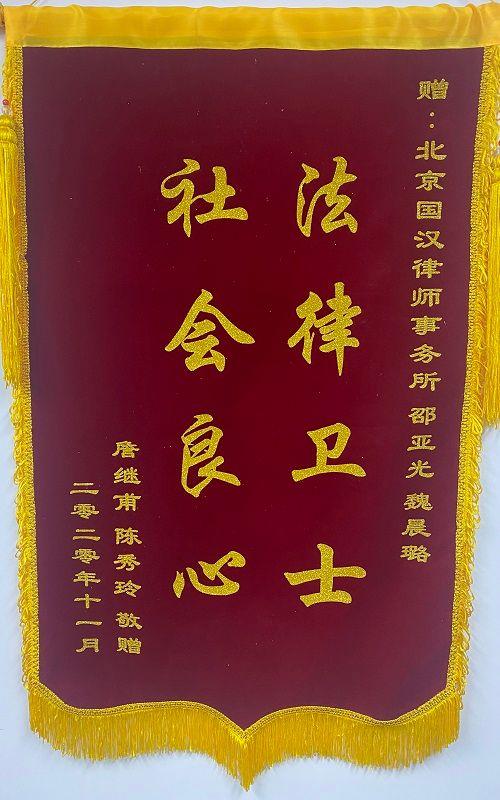 赠：北京国汉律师事务所 邵亚光 魏晨璐
法律卫士
社会良心
詹继甫 陈秀玲 敬赠
二零二零年十一月